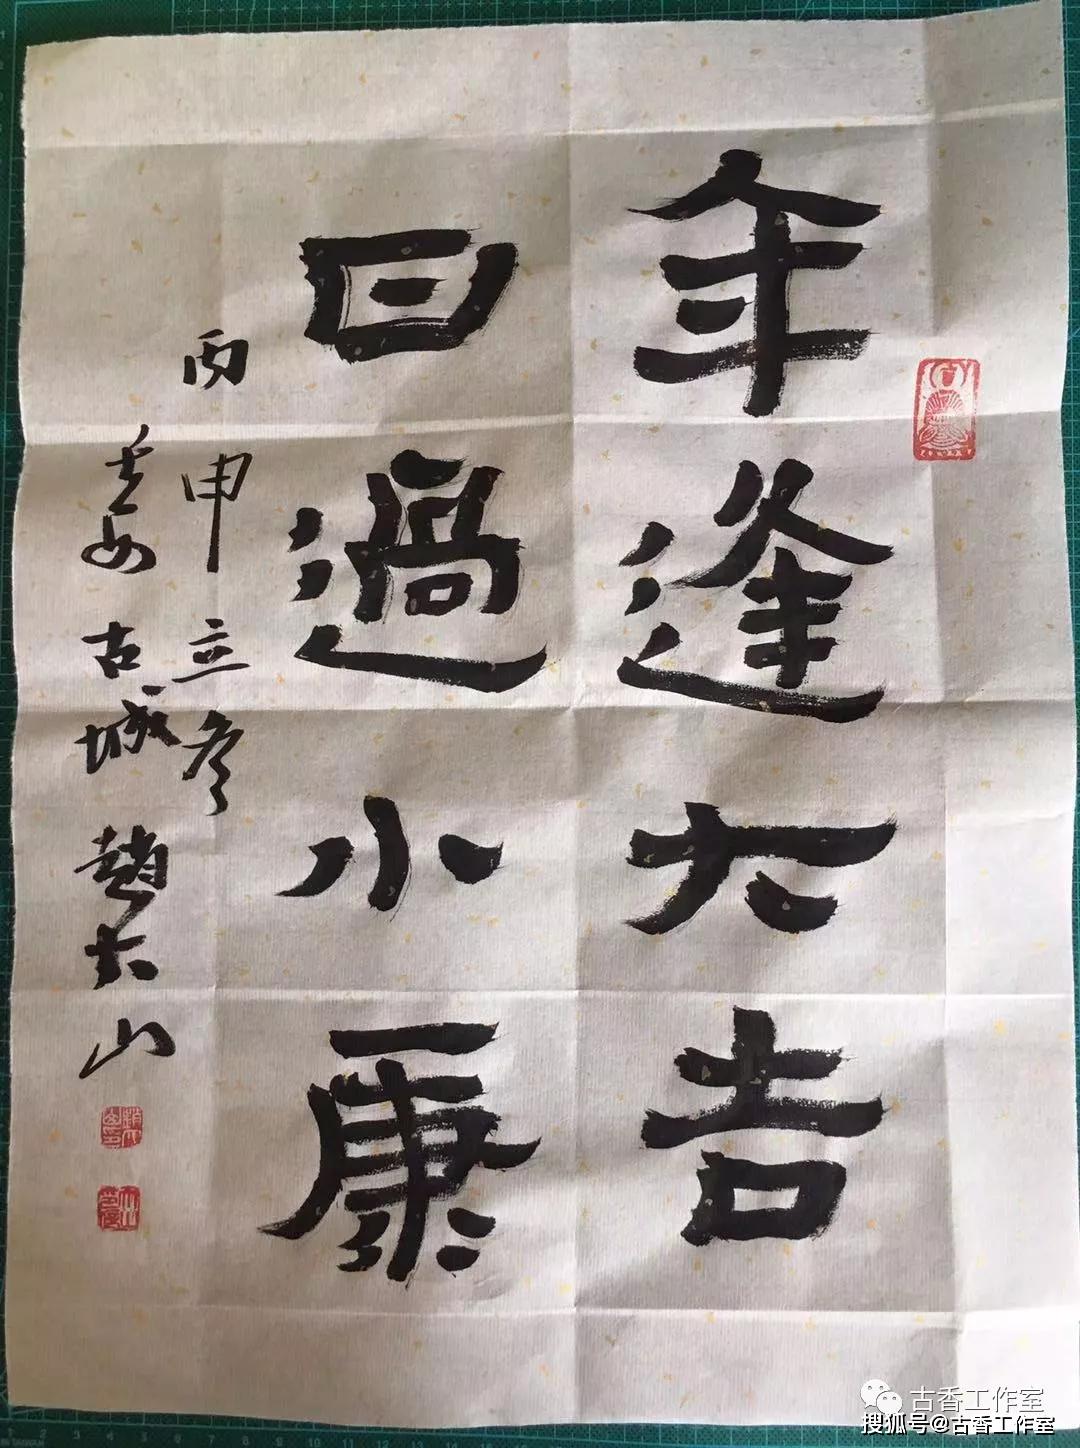 年逢大吉
日過小康
丙申立冬
长安古城趙大山
古香工作室
搜狐号@古香工作室